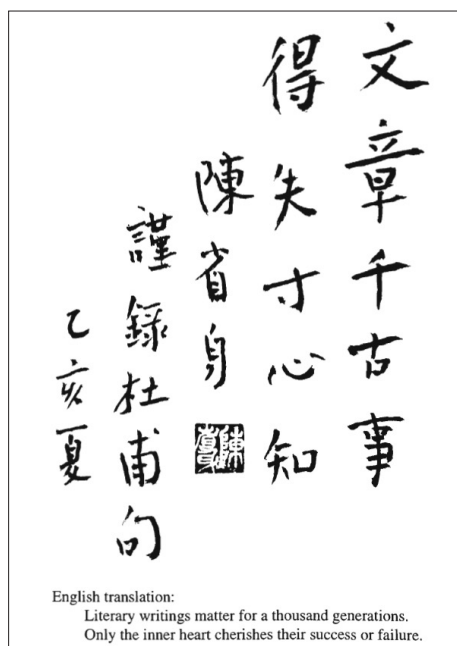 文章千古事
得失寸心知
陳省身
謹錄杜甫句
乙亥夏
English translation:
Literary writings matter for a thousand generations.
Only the inner heart cherishes their success or failure.